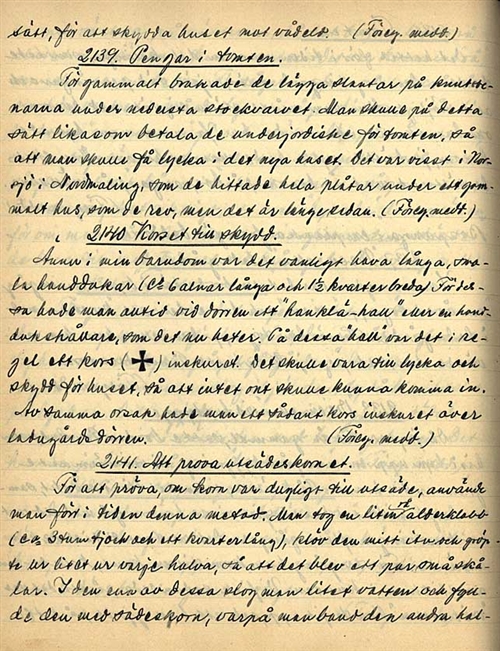 sätt, för att skydda huset mot vådeld. (Föreg. medd.)
2139. Pengar i tomten.
För gammalt brukade de lägga slantar på knutste-
narna under nedersta stockvarvet. Man skulle på detta
sätt likasom betala de underjordiske för tomten, så
att man skulle få lycka i det nya huset. Det var visst i Nor-
sjö i Nordmaling, som de hittade hela plåtar under ett gam-
malt hus, som de rev, men det är länge sedan. (Föreg. medd.)
2140 Korset till skydd.
Ännu i min barndom var det vanligt hava långa, sma-
la handdukar (Ca 6 alnar långa och 1½ kvarter breda) För des-
sa hade man alltid vid dörren ett "hanklä-hall" eller en hand-
dukshållare, som det nu heter. På dessa "hall" var det i re-
gel ett kors (✠) inskuret. Det skulle vara till lycka och
skydd för huset, så att intet ont skulle kunna komma in.
Av samma orsak hade man ett sådant kors inskuret över
ladugårdsdörren. (Föreg. medd.)
2141. Att pröva utsädeskornet.
För att pröva, om korn var dugligt till utsäde, använde
man förr i tiden denna metod. Man tog en liten alderklabb
(ca 3 tum tjock och ett kvarter lång), klöv den mitt itu och gröp-
te ur litet ur varje halva, så att det blev ett par små skå-
lar. I den ena av dessa slog man litet vatten och fyll-
de den med sädeskorn, varpå man band den andra hal-